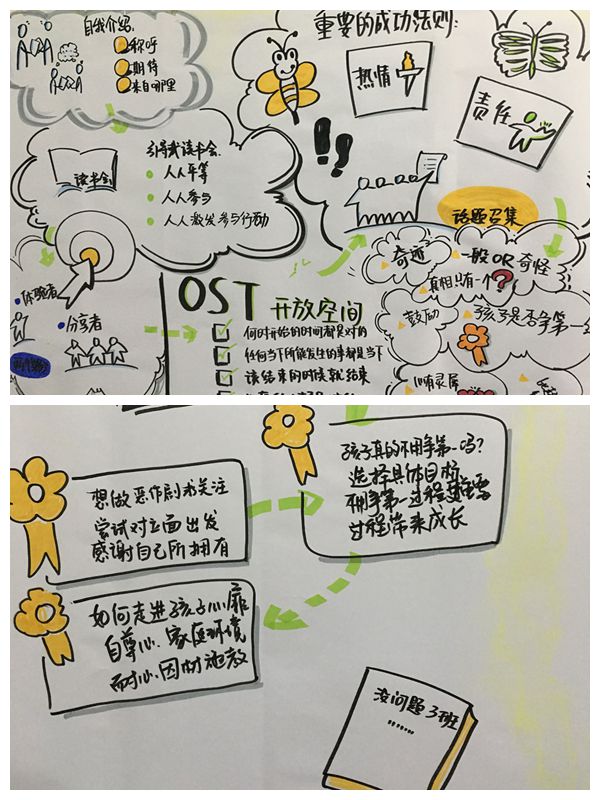 自我介绍:
称呼
期待
来自哪里
重要的成功法则:
热情
责任
读书会
引导我读书会
人人平等
人人参与
人人激发参与行动
体验者
分享者
话题召集
OST 开放空间
何时开始的时间都是对的
任何当下所能发生的事都是当下
该结束的时候就结束
奇迹
一般OR奇怪
真相只有一个?
鼓励
孩子是否争第一
想做恶作剧求关注
尝试对立面出发
感谢自己所拥有
孩子真的不用争第一吗?
选择具体目标
不用争第一过程更重要
过程带来成长
如何走进孩子心扉
自尊心、家庭环境
耐心、因材施教
没问题3班
......